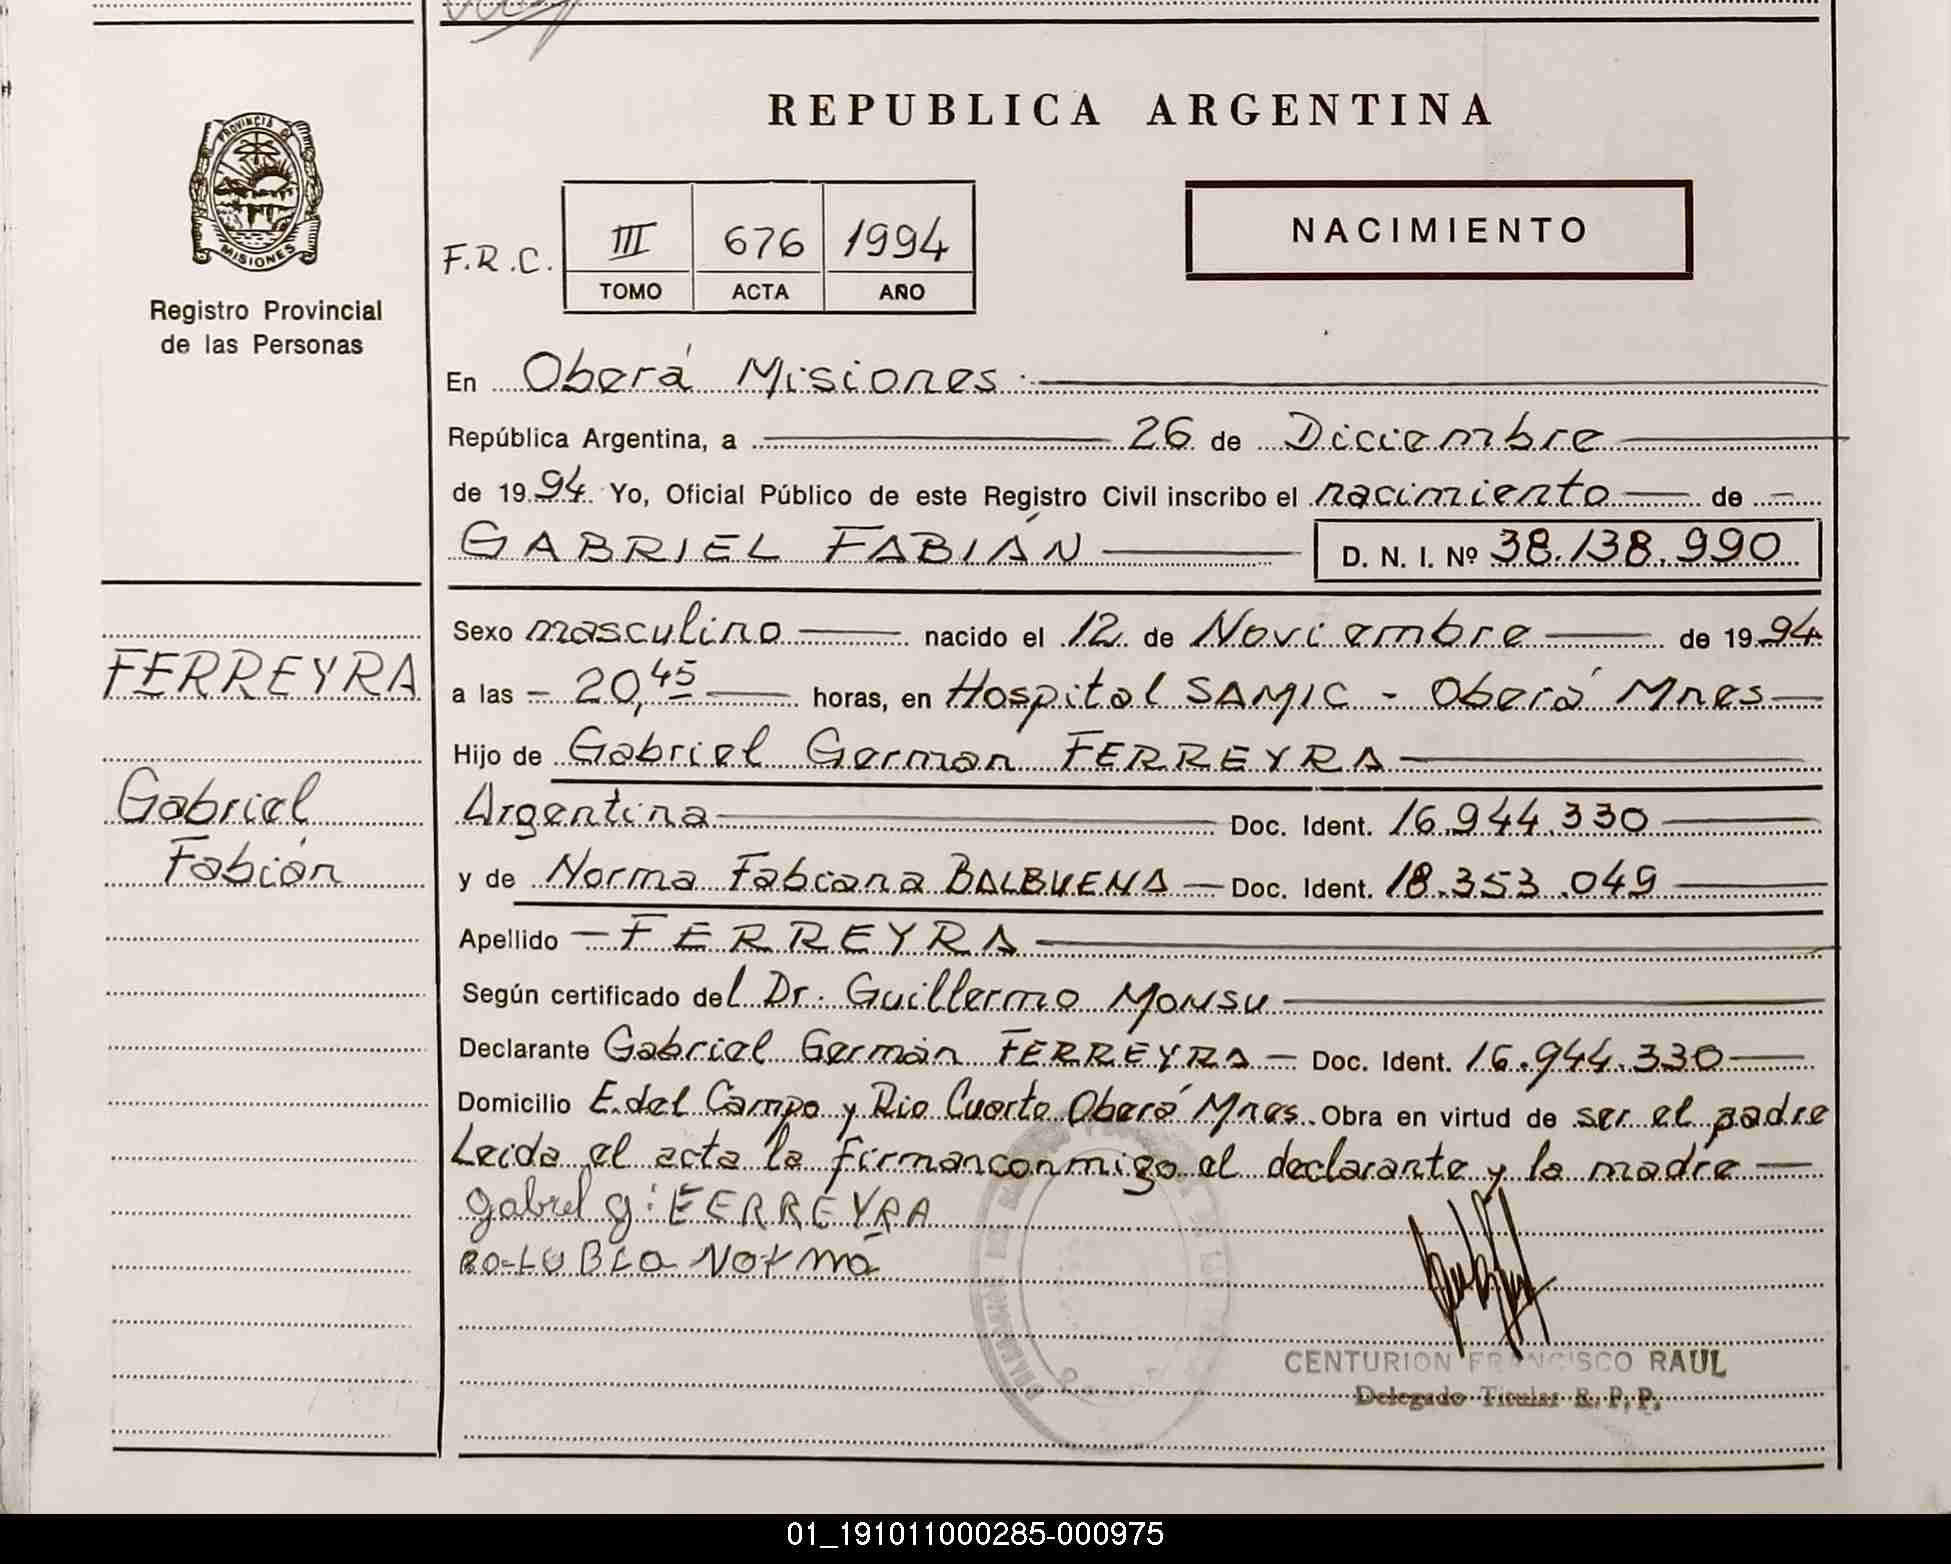 REPUBLICA ARGENTINA
PROVINCIA DE
MISIONES
Registro Provincial
de las Personas
F.R.C. III 676 1994
TOMO ACTA AÑO
NACIMIENTO
En Oberá Misiones
República Argentina, a 26 de Diciembre
de 1994 Yo, Oficial Público de este Registro Civil inscribo el nacimiento de
GABRIEL FABIÁN D. N. I. Nº 38.138.990
FERREYRA
Gabriel
Fabián
Sexo masculino nacido el 12 de Noviembre de 1994
a las 20,45 horas, en Hospital SAMIC - Oberá Mnes
Hijo de Gabriel German FERREYRA
Argentina Doc. Ident. 16.944.330
y de Norma Fabiana BALBUENA Doc. Ident. 18.353.049
Apellido FERREYRA
Según certificado del Dr. Guillermo MONSU
Declarante Gabriel Germán FERREYRA Doc. Ident. 16.944.330
Domicilio E. del Campo y Rio Cuarto Oberá Mnes. Obra en virtud de ser el padre
Leida el acta la firman conmigo el declarante y la madre
Gabriel G. FERREYRA
Norma
CENTURION FRANCISCO RAUL
Delegado Titular R. P. P.
01_191011000285-000975